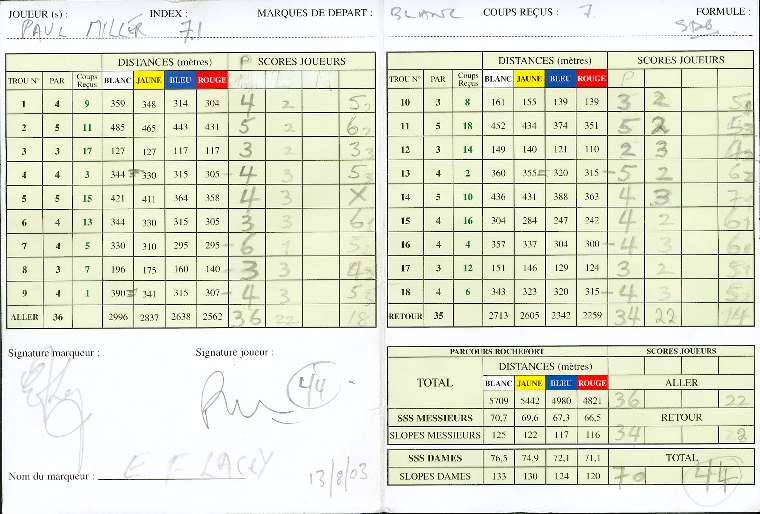 JOUEUR (s) : PAUL MILLER INDEX : 7.1 MARQUES DE DEPART : BLANC COUPS REÇUS : 7 FORMULE :
DISTANCES (mètres) P SCORES JOUEURS
TROU N° PAR Coups Reçus BLANC JAUNE BLEU ROUGE
1 4 9 359 348 314 304 4 2 5
2 5 11 485 465 443 431 5 2 6
3 3 17 127 127 117 117 3 2 3
4 4 3 344 330 315 305 4 3 5
5 5 15 421 411 364 358 4 3 X
6 4 13 344 330 315 305 3 3 6
7 4 5 330 310 295 295 6 1 5
8 3 7 196 175 160 140 3 3 4
9 4 1 390 341 315 307 4 3 5
ALLER 36 2996 2837 2638 2562 36 22 18
Signature marqueur : Signature joueur :
44
Nom du marqueur : E F LACEY
13/8/03
DISTANCES (mètres) SCORES JOUEURS
TROU N° PAR Coups Reçus BLANC JAUNE BLEU ROUGE P
10 3 8 161 155 139 139 3 2 5
11 5 18 452 434 374 351 5 2 5
12 3 14 149 140 121 110 2 3 4
13 4 2 360 355 320 315 5 2 6
14 5 10 436 431 388 363 4 3 7
15 4 16 304 284 247 242 4 2 6
16 4 4 357 337 304 300 4 3 6
17 3 12 151 146 129 124 3 2 5
18 4 6 343 323 320 315 4 3 5
RETOUR 35 2713 2605 2342 2259 34 22 14
PARCOURS ROCHEFORT SCORES JOUEURS
DISTANCES (mètres)
TOTAL BLANC JAUNE BLEU ROUGE ALLER
5709 5442 4980 4821 36 22
SSS MESSIEURS 70,7 69,6 67,3 66,5 RETOUR
SLOPES MESSIEURS 125 122 117 116 34 22
SSS DAMES 76,5 74,9 72,1 71,1 TOTAL
SLOPES DAMES 133 130 124 120 70 44